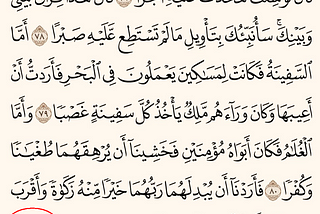 قَالَ لَوْ شِئْتَ لَتَّخَذْتَ عَلَيْهِ أَجْرًا ٧٧ قَالَ هَٰذَا فِرَاقُ بَيْنِي
وَبَيْنِكَ ۚ سَأُنَبِّئُكَ بِتَأْوِيلِ مَا لَمْ تَسْتَطِع عَّلَيْهِ صَبْرًا ٧٨ أَمَّا
السَّفِينَةُ فَكَانَتْ لِمَسَاكِينَ يَعْمَلُونَ فِي الْبَحْرِ فَأَرَدتُّ أَنْ
أَعِيبَهَا وَكَانَ وَرَاءَهُم مَّلِكٌ يَأْخُذُ كُلَّ سَفِينَةٍ غَصْبًا ٧٩ وَأَمَّا
الْغُلَامُ فَكَانَ أَبَوَاهُ مُؤْمِنَيْنِ فَخَشِينَا أَن يُرْهِقَهُمَا طُغْيَانًا
وَكُفْرًا ٨٠ فَأَرَدْنَا أَن يُبْدِلَهُمَا رَبُّهُمَا خَيْرًا مِّنْهُ زَكَاةً وَأَقْرَبَ